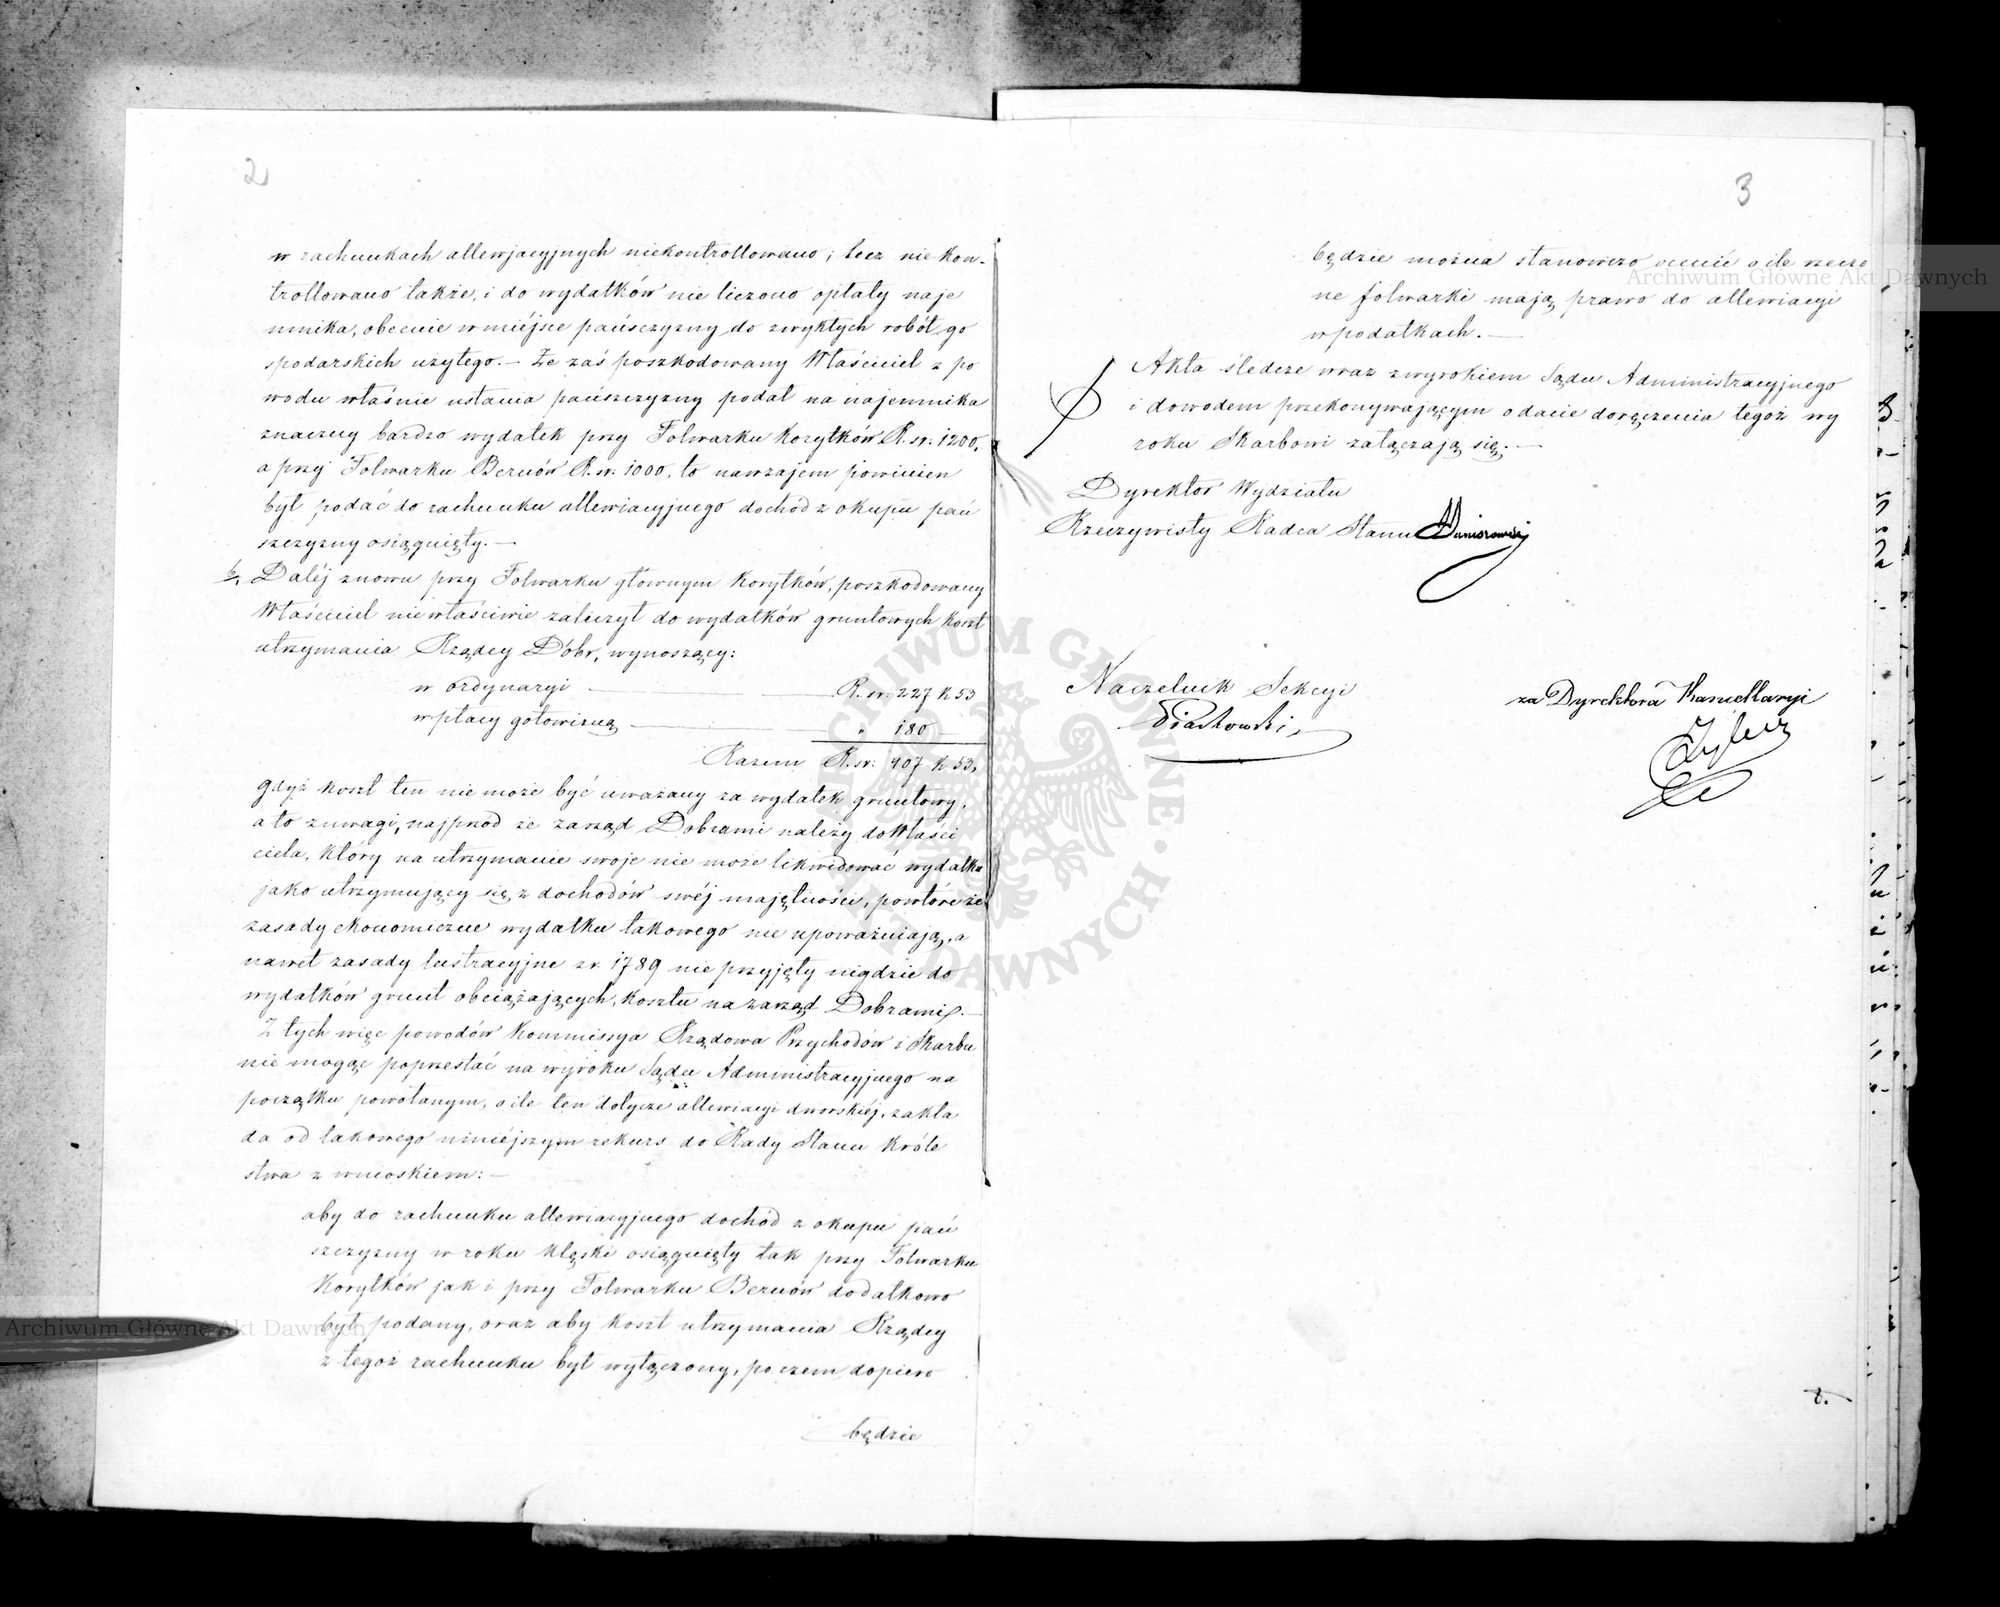 2
w rachunkach allewjacyjnych niekontrollowano; lecz nie kon-
trollowano także, i do wydatków nie liczono opłaty naje
mnika, obecnie w miéjsce pańsczyzny do zwykłych robót go
spodarskich użytego. — Że zaś poszkodowany Właściciel z po
wodu właśnie ustania pańszczyzny podał na najemnika
znaczny bardzo wydatek przy Folwarku Korytków R. sr: 1200,
a przy Folwarku Bernów R. sr: 1000, to nawzajem powinien
był podać do rachunku allewiacyjnego dochód z okupu pań
szczyzny osiągnięty. —
b, Daléj znowu przy Folwarku głównym Korytków, poszkodowany
Właściciel niewłaściwie zaliczył do wydatków gruntowych koszt
utrzymania Rządcy Dóbr, wynoszący:
w ordynaryi — R. sr: 227 k 53
w płacy gotowizną — „ 180
Razem R. sr: 407 k 53,
gdyż koszt ten nie może być uważany za wydatek gruntowy,
a to z uwagi, najprzód że zarząd Dobrami należy do Właści
ciela, który na utrzymanie swoje nie może likwidować wydatku
jako utrzymujący się z dochodów swéj majętności, powtóre że
zasady ekonomiczne wydatku takowego nie upoważniają, a
nawet zasady lustracyjne z r. 1789 nie przyjęły nigdzie do
wydatków grunt obciążających, kosztu na zarząd Dobrami. —
Z tych więc powodów Kommissya Rządowa Przychodów i Skarbu
nie mogąc poprzestać na wyroku Sądu Administracyjnego na
początku powołanym, o ile ten dotycze allewiacyi dworskiéj, zakła
da od takowego niniéjszym rekurs do Rady Stanu Króle
stwa z wnioskiem: —
aby do rachunku allewiacyjnego dochód z okupu pań
szczyzny w roku klęski osiągnięty tak przy Folwarku
Korytków jak i przy Folwarku Bernów dodatkowo
był podany, oraz aby koszt utrzymania Rządcy
z tegoż rachunku był wyłączony, po czem dopiero
będzie
3
będzie można stanowczo ocenić o ile rzeczo
ne folwarki mają prawo do allewiacyi
w podatkach. —
Akta śledcze wraz z wyrokiem Sądu Administracyjnego
i dowodem przekonywającym o dacie doręczenia tegoż wy
roku Skarbowi załączają się. —
Dyrektor Wydziału
Rzeczywisty Radca Stanu
Naczelnik Sekcyi
Piaskowski
za Dyrektora Kancellaryi
Archiwum Główne Akt Dawnych
Archiwum Główne Akt Dawnych
ARCHIWUM GŁÓWNE AKT DAWNYCH